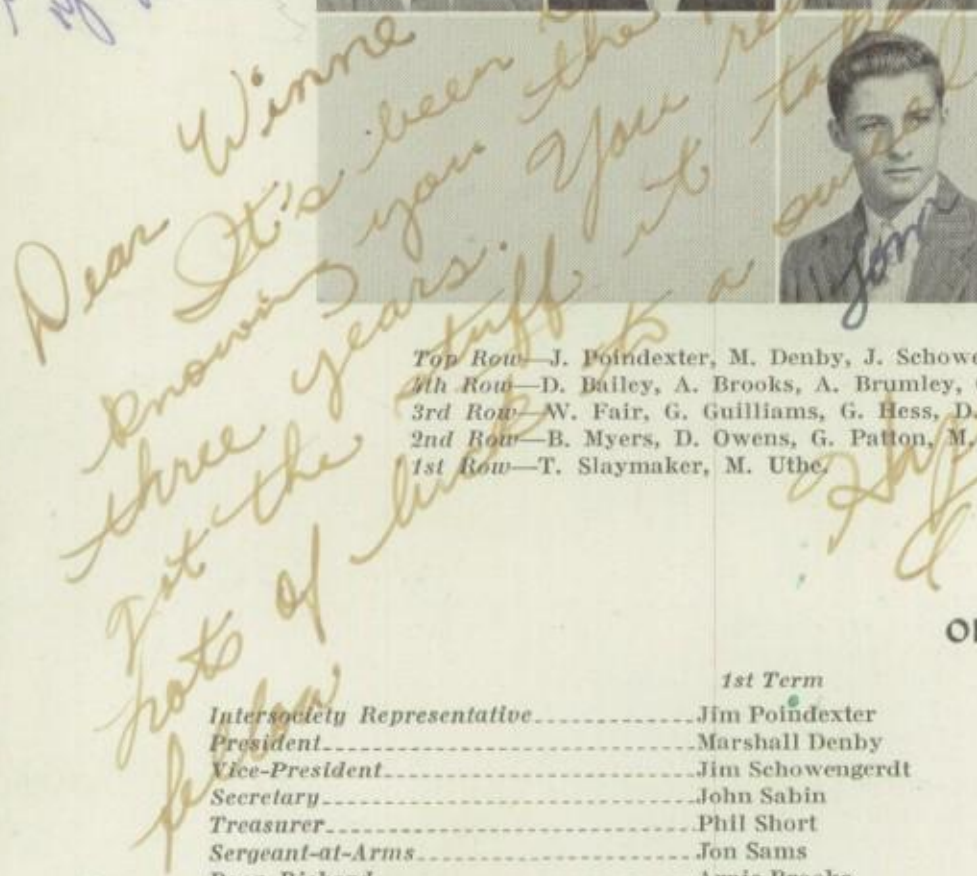 Dear Winne
It's been
knowing you the
three years. You
got the stuff it
hots of luck to a
fella
Jon
Top Row—J. Poindexter, M. Denby, J. Schowe
4th Row—D. Bailey, A. Brooks, A. Brumley,
3rd Row—W. Fair, G. Guilliams, G. Hess, D.
2nd Row—B. Myers, D. Owens, G. Patton, M.
1st Row—T. Slaymaker, M. Uthe.
1st Term
Intersociety Representative Jim Poindexter
President Marshall Denby
Vice-President Jim Schowengerdt
Secretary John Sabin
Treasurer Phil Short
Sergeant-at-Arms Jon Sams